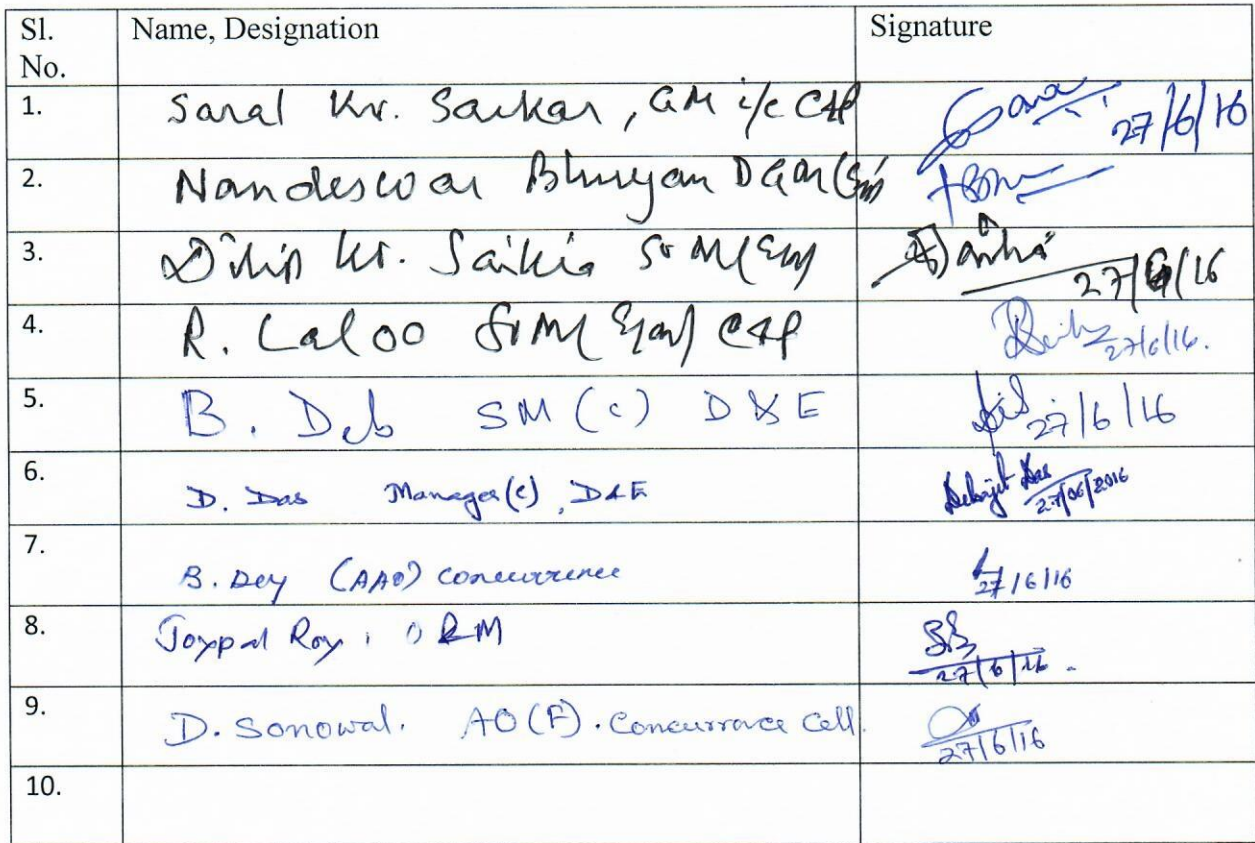 Sl. No. Name, Designation Signature
1. Saral Kr. Sarkar, GM i/c C&P 27/6/16
2. Nandeswar Bhuyan DGM
3. Dilip Kr. Saikia Sr M(EM) 27/6/16
4. R. Laloo Sr M( C&P 27/6/16.
5. B. Deb SM (C) D&E 27/6/16
6. D. Das Manager(C), D&E Debojit Das 27/06/2016
7. B. Dey (AAO) concurrence 27/6/16
8. Joypal Roy 27/6/16
9. D. Sonowal. AO(F). Concurrance Cell. 27/6/16
10.